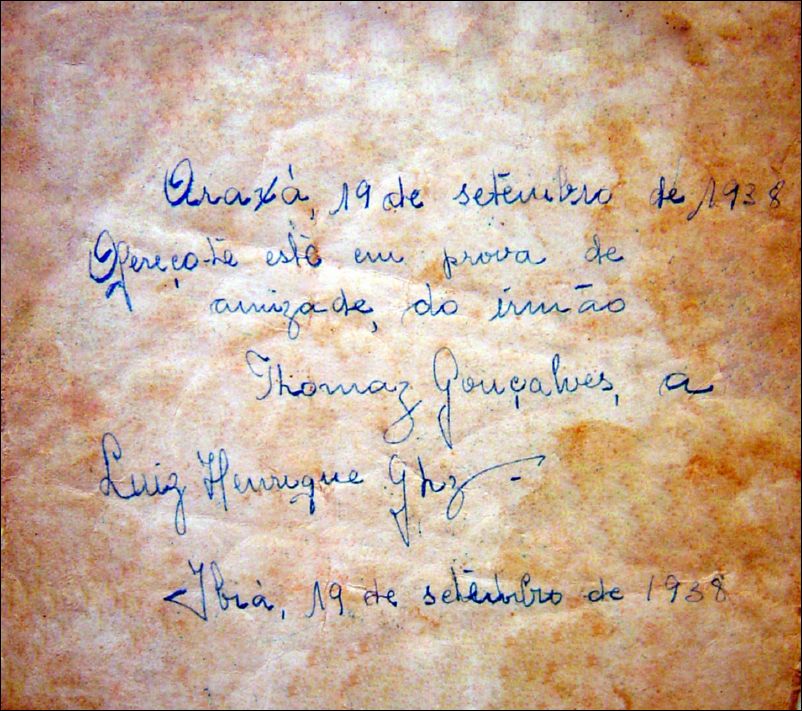 Araxá, 19 de setembro de 1938
Ofereço-te este em prova de
amizade, do irmão
Thomaz Gonçalves, a
Luiz Henrique Ghz -
Ibiá, 19 de setembro de 1938